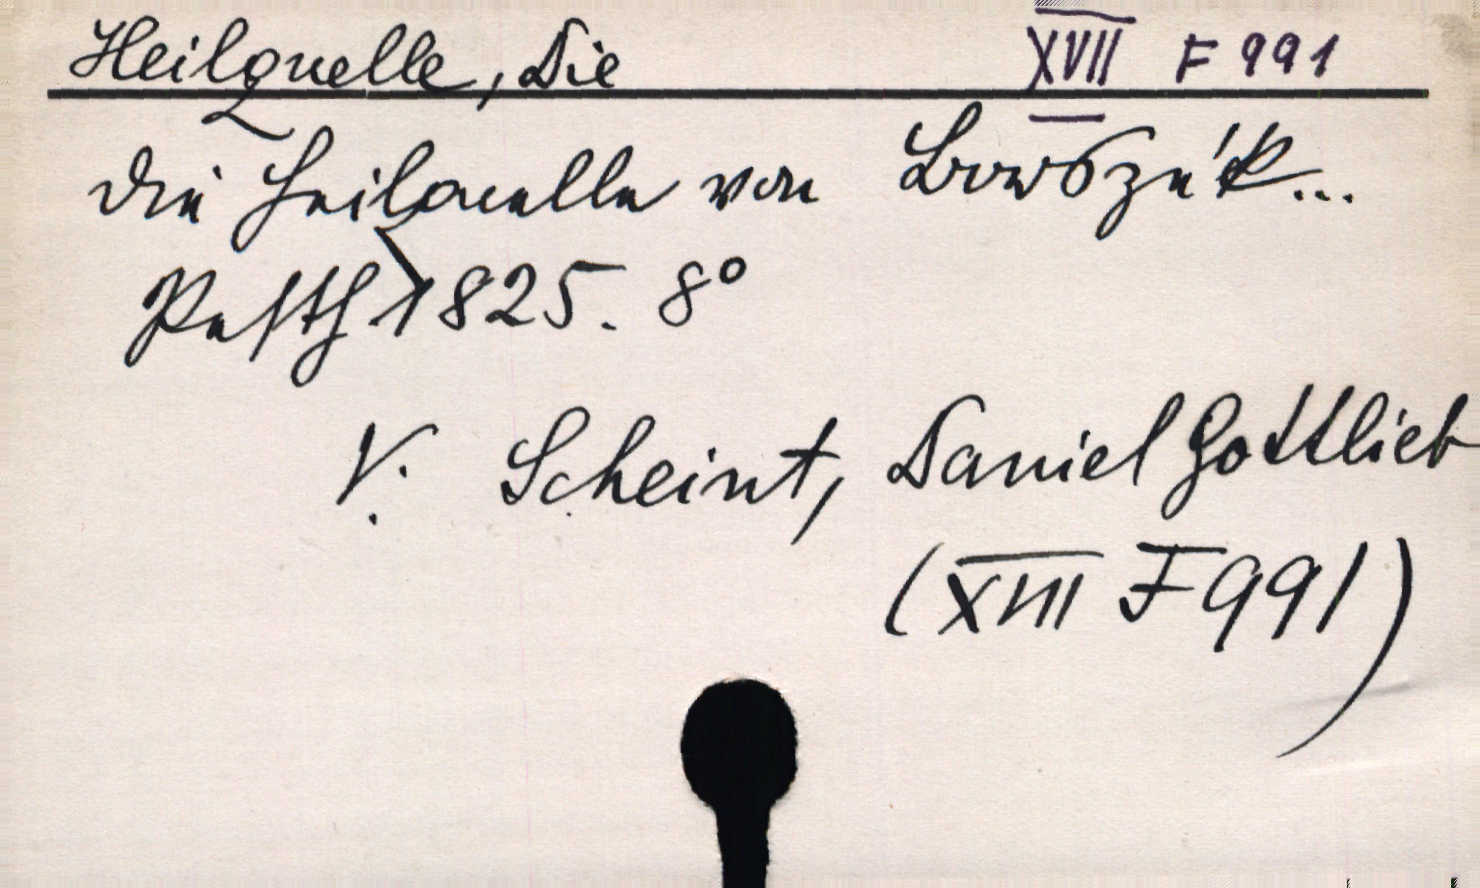 Heilquelle, Die XVII F 991
Die Heilquelle von Borszék...
Pesth 1825. 8°
V. Scheint, Daniel Gottlieb
(XVII F 991)